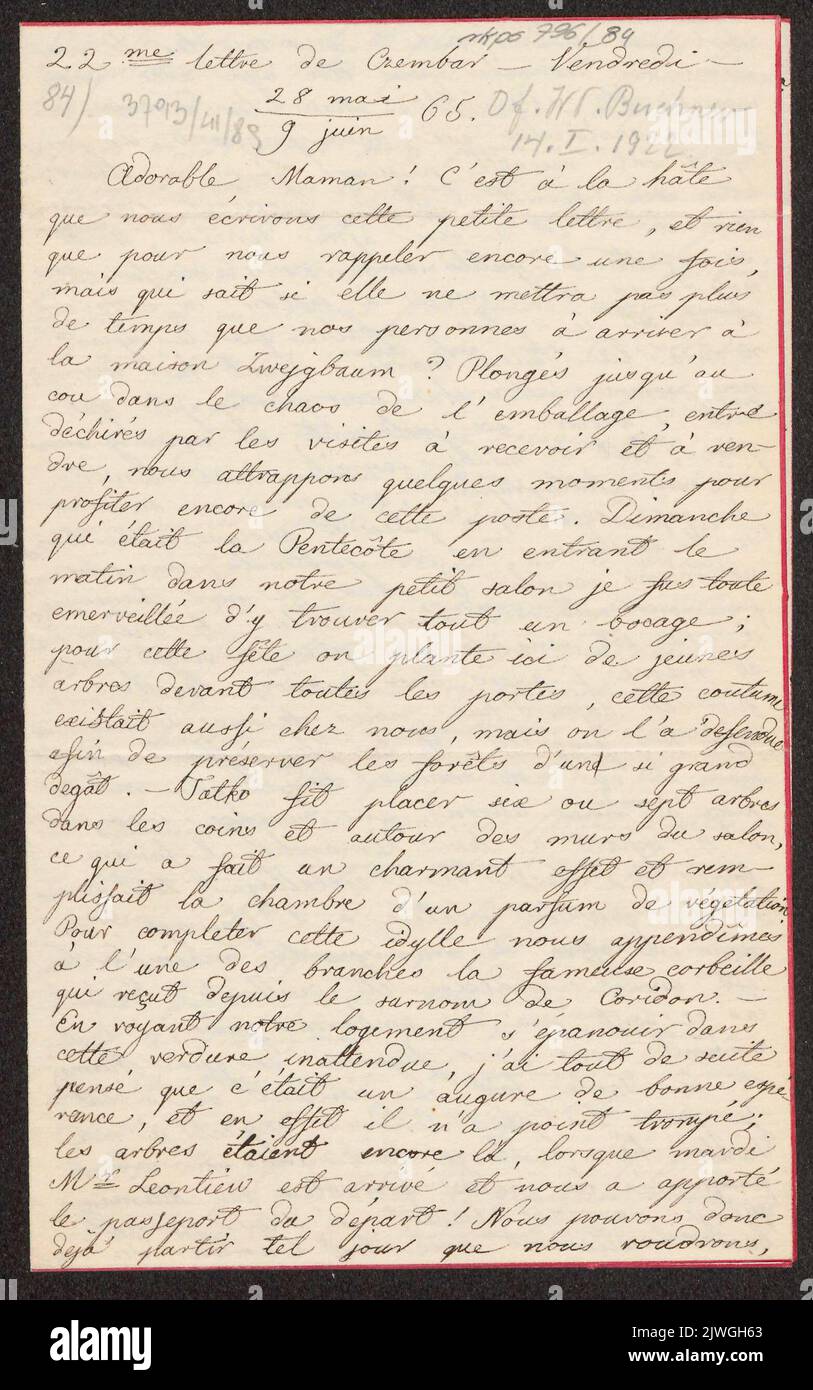 rkps 796/84
22me lettre de Czembar — Vendredi —
84) 37013/III/89
28 mai
9 juin 65. Of. Wł. Buchner
14. I. 1922
Adorable Maman! C'est à la hâte
que nous écrivons cette petite lettre, et rien
que pour nous rappeler encore une fois,
mais qui sait si elle ne mettra pas plus
de temps que nos personnes à arriver à
la maison Zwejgbaum? Plongés jusqu'au
cou dans le chaos de l'emballage, entre
déchirés par les visites à recevoir et à ren-
dre, nous attrappons quelques moments pour
profiter encore de cette poste. Dimanche
qui était la Pentecôte en entrant le
matin dans notre petit salon je fus toute
emerveillée d'y trouver tout un bocage;
pour cette fête on plante ici de jeunes
arbres devant toutes les portes, cette coutume
existait aussi chez nous, mais on l'a defendue
afin de préserver les forêts d'un si grand
degât. — Tatko fit placer six ou sept arbres
dans les coins et autour des murs du salon,
ce qui a fait un charmant effet et rem-
plissait la chambre d'un parfum de végétation
Pour completer cette idylle nous appendîmes
à l'une des branches la fameuse corbeille
qui reçut depuis le surnom de Coridon. —
En voyant notre logement s'épanouir dans
cette verdure inattendue, j'ai tout de suite
pensé que c'était un augure de bonne espé-
rance, et en effet il n'a point trompé;
les arbres étaient encore là, lorsque mardi
Mr Leontiew est arrivé et nous a apporté
le passeport du départ! Nous pouvons donc
dejà partir tel jour que nous voudrons,
alamy
alamy
Image ID: 2JWGH63
www.alamy.com